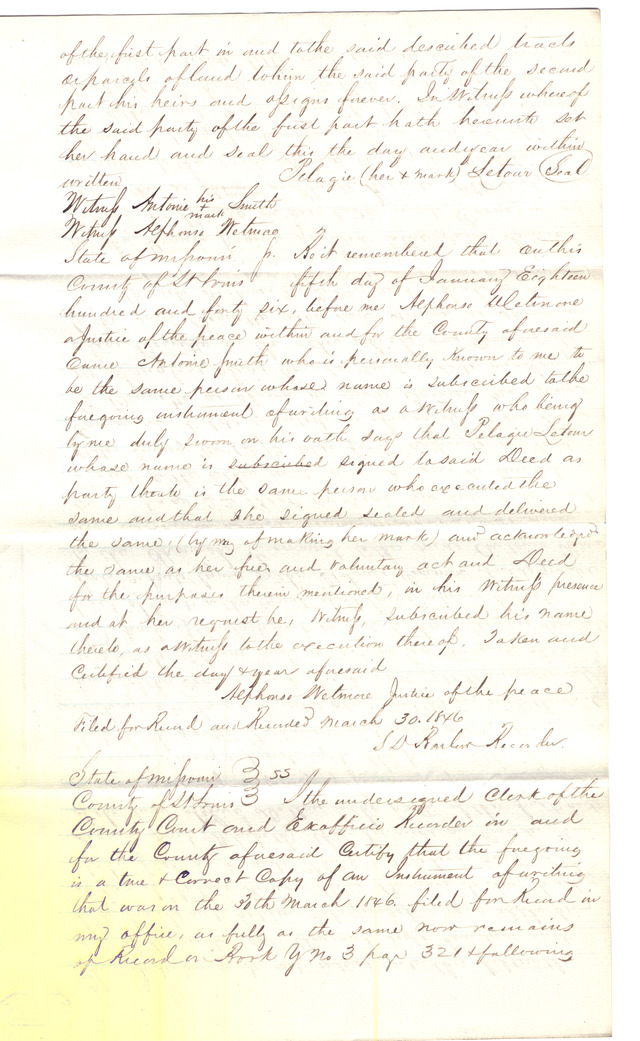 of the first part in and to the said described tracts
or parcels of land to him the said party of the second
part his heirs and assigns forever. In Witness whereof
the said party of the first part hath hereunto set
her hand and seal this the day and year within
written Pelagie (her x mark) Letour (Seal)
Witness Antonie his x mark Smith
Witness Alphonso Wetmore
State of Missouri Be it remembered that on this
County of St Louis fifth day of January Eighteen
hundred and forty six, before me Alphonso Wetmore
a Justice of the peace within and for the County aforesaid
Came Antonie Smith who is personally Known to me to
be the same person whose name is subscribed to the
foregoing instrument of writing as a Witness who being
by me duly sworn on his oath says that Pelagie Letour
whose name is subscribed signed to said Deed as
party thereto is the same person who executed the
same and that she signed sealed and delivered
the same, (by way of making her mark) and acknowledged
the same as her free and voluntary act and Deed
for the purposes therein mentioned, in his Witness presence
and at her request he, Witness, subscribed his name
thereto, as a Witness to the execution thereof. Taken and
Certified the day & year aforesaid
Alphonso Wetmore Justice of the peace
Filed for Record and Recorded March 30. 1846
S D Barlow Recorder.
State of Missouri } ss
County of St Louis } I the undersigned Clerk of the
County Court and Exofficio Recorder in and
for the County aforesaid Certify that the foregoing
is a true & Correct Copy of an Instrument of writing
that was on the 30th March 1846. filed for Record in
my office, as fully as the same now remains
of Record in Book Y No 3 page 321 & following